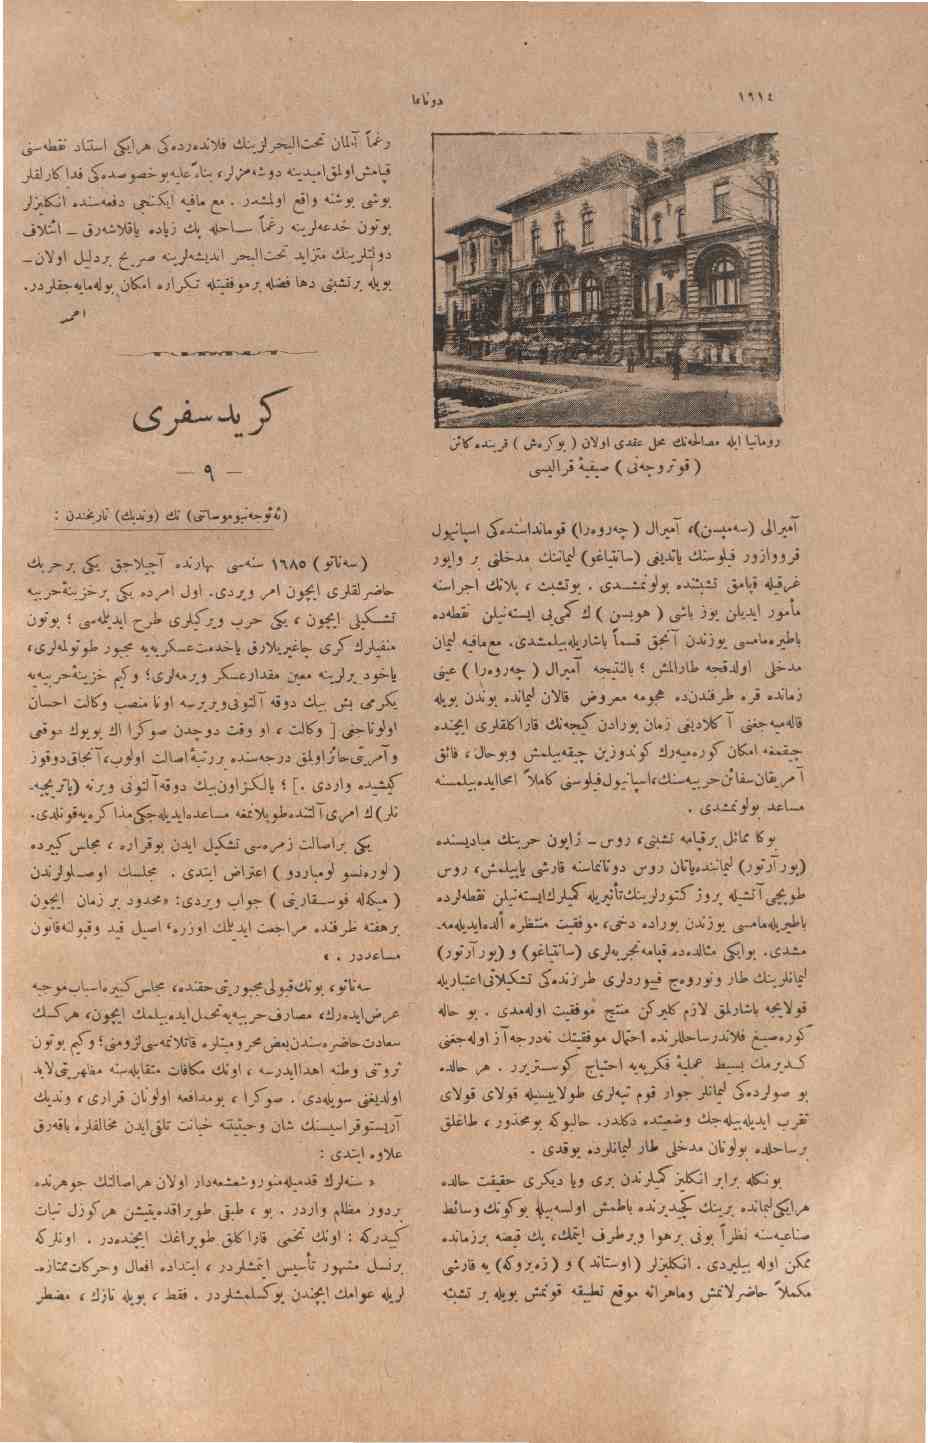 ١٩١٤
دوناما
رومانیا ایله مصالحه‌نك محل عقدی اولان ( بوکره‌ش ) قربنده کائن
( قوتروچه‌نی ) صیفیهٔ قرالیسی
آمیرالی (سه‌مپسن)، آمیرال (چه‌روه‌را) قومانداسنده‌کی اسپانیول
قرووازور فیلوسنك یاتدیغی (سانتیاغو) لیماننك مدخلنی بر واپور
غرقیله قپامق تشبثنده بولونمشدی . بوتشبث ، پلانك اجراسنه
مأمور ایدیلن یوز باشی ( هوبسن ) ك کمی‌یی ایسته‌نیلن نقطه‌ده
باطیره‌مامسی یوزندن آنجق قسماً باشاریله‌بیلمشدی. مع‌مافیه لیمان
مدخلی اولدقجه طارالمش ؛ بالنتیجه آمیرال ( چه‌روه‌را ) عینی
زمانده قره طرفندن‌ده هجومه معروض قالان لیمانده بوندن بویله
قاله‌میه‌جغنی آکلادیغی زمان بورادن کیجه‌نك قاراکلقلری ایچنده
چیقمغه امکان کوره‌میه‌رك کوندوزین چیقه‌بیلمش وبوحال ، فائق
آمریقان سفائن حربیه‌سنك، اسپانیول فیلوسنی کاملاً امحا ایده‌بیلمسنه
مساعد بولونمشدی .
بوکا مماثل برقپامه تشبثی، روس ـ ژاپون حربنك مبادیسنده
(پورآرتور) لیماننده‌یاتان روس دوناماسنه قارشی یاپیلمش، روس
طوپجی آتشیله پروژکتورلرینك تأثیریله کمیلرك ایسته‌نیلن نقطه‌لرده
باطیریله‌مامسی یوزندن بوراده دخی، موفقیت منتظره الده‌ایدیله‌مه-
مشدی. بوایکی مثالده‌ده قپامه تجربه‌لری (سانتیاغو) و (پورآرتور)
لیمانلرینك طار ونوروه‌ج فیوردلری طرزنده‌کی تشکیلاتی اعتباریله
قولایجه باشارلمق لازم کلیرکن منتج موفقیت اوله‌مدی . بو حاله
کوره صیغ فلاندر ساحللرنده احتمال موفقیتك نه‌درجه آز اوله‌جغنی
کسدیرمك بسیط عملیهٔ فکریه‌یه احتیاج کوستریر . هر حالده
بو صولرده‌کی لیمانلر جوار قوم تپه‌لری طولاییسیله قولای قولای
تقرب ایدیله‌بیله‌جك وضعیتده دکلدر. حالبوکه بومحذور ، طاغلق
برساحلده بولونان مدخلی طار لیمانلرده یوقدی .
بونکله برابر انکلیز کمیلرندن بری ویا دیکری حقیقت حالده
هرایکی‌لیمانده برینك کچیدیرنده باطمش اولسه‌بیله بوکونك وسائط
صناعیه‌سنه نظراً بونی برهوا وبرطرف ایتمك، پك قیصه برزمانده
ممکن اوله بیلیردی . انکلیزلر (اوستاند ) و ( زه‌بروکه) یه قارشی
مکملاً حاضرلانمش وماهرانه موقع تطبیقه قونمش بویله بر تشبثه
رغماً آلمان تحت‌البحرلرینك فلانده‌رده‌کی هرایکی استناد نقطه‌سنی
قپامش اولمق امیدینه دوشه‌مزلر، بناءً علیه بوخصوصده‌کی فداکارلقلر
بوشی بوشنه واقع اولمشدر . مع مافیه ایکنجی دفعه‌سنده انکلیزلر
بوتون خدعه‌لرینه رغماً ساحله پك زیاده یاقلاشه‌رق ـ ائتلاف
دولتلرینك متزاید تحت‌البحر اندیشه‌لرینه صریح بردلیل اولان ـ
بویله برتشبثی دها فضله برموفقیتله تکراره امکان بوله‌مایه‌جقلردر.
احمد
کرید سفری
— ٩ —
(ئه‌ئوجه‌نیوموساتتی) نك (وندیك) تاریخندن :
(سه‌ناتو) ١٦٨٥ سنه‌سی بهارنده آچیلاجق یکی برحربك
حاضرلقلری ایچون امر ویردی. اول امرده یکی برخزینهٔ حربیه
تشکیلی ایچون ، یکی حرب ویرکیلری طرح ایدیلمه‌سی ؛ بوتون
منفیلرك کری چاغیریلارق یاخدمت عسکریه‌یه مجبور طوتولمه‌لری،
یاخود برلرینه معین مقدار عسکر ویرمه‌لری؛ وکیم خزینهٔ حربیه‌یه
یکرمی بش بیك دوقه آلتونی ویررسه اونا منصب وکالت احسان
اولوناجغی [ وکالت ، او وقت دوجدن صوکرا اك بویوك موقعی
وآمریتی حائز اولمق درجه‌سنده بررتبهٔ اصالت اولوب، آنجاق دوقوز
کیشیده واردی .] ؛ یالکز اون‌بیك دوقه آلتونی ویرنه (پاتریچیه-
نلر) ك امری آلتنده طوپلانمغه مساعده‌ایدیله‌جکی مذاکره‌یه قونلدی.
یکی براصالت زمره‌سی تشکیل ایدن بوقراره ، مجلس کبیرده
( لوره‌نسو لومباردو ) اعتراض ایتدی . مجلسك اوصلولرندن
( میکه‌له فوسقارینی ) جواب ویردی: «محدود بر زمان ایچون
برهفته ظرفنده مراجعت ایدیلمك اوزره، اصیل قید وقبولنه قانون
مساعددر . »
سه‌ناتو ، بونك‌قبولی مجبوریتی حقنده، مجلس کبیره اسباب موجبه
عرض ایده‌رك، مصارف حربیه‌یه تحمل ایده‌بیلمك ایچون، هرکسك
سعادت حاضره‌سندن بعض محرومیتلره قاتلانمه‌سی لزومنی؛ وکیم بوتون
ثروتنی وطنه اهدا ایدرسه ، اونك مکافات متقابله‌سنه مظهریتی لابد
اولدیغنی سویله‌دی . صوکرا ، بومدافعه اولونان قراری ، وندیك
آریستوقراسیسنك شان وحیثیتنه خیانت تلقی ایدن مخالفلره باقه‌رق
علاوه ایتدی :
« سنه‌لرك قدمیله منور وشعشعه‌دار اولان هراصالتك جوهرنده
بردور مظلم واردر . بو ، طبقی طوپراقده یتیشن هرکوزل نبات
کبیدرکه : اونك تخمی قاراکلق طوپراغك ایچنده‌در . اونلرکه
برنسل مشهور تأسیس ایتمشلردر ، ابتداده افعال وحرکات ممتازه-
لریله عوامك ایچندن یوکسلمشلردر . فقط ، بویله نازك ، مضطر